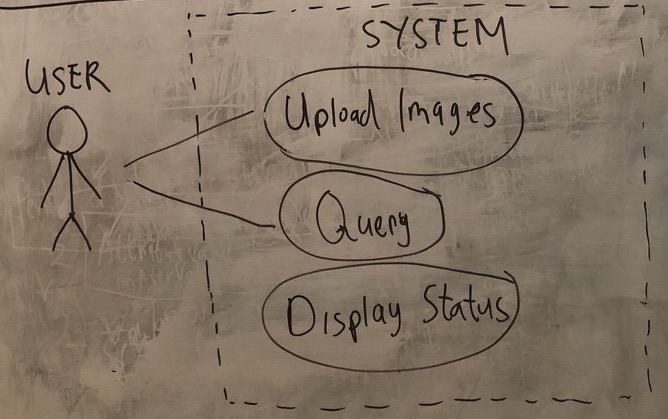 SYSTEM
USER
Upload Images
Query
Display Status